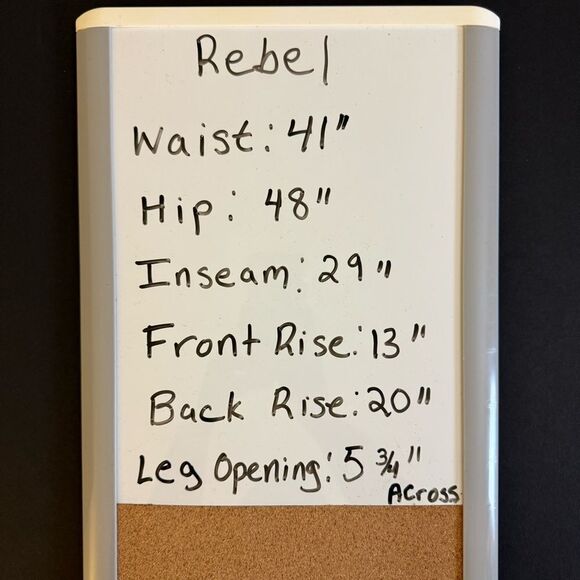 Rebel
Waist: 41"
Hip: 48"
Inseam: 29"
Front Rise: 13"
Back Rise: 20"
Leg Opening: 5 3/4"
Across